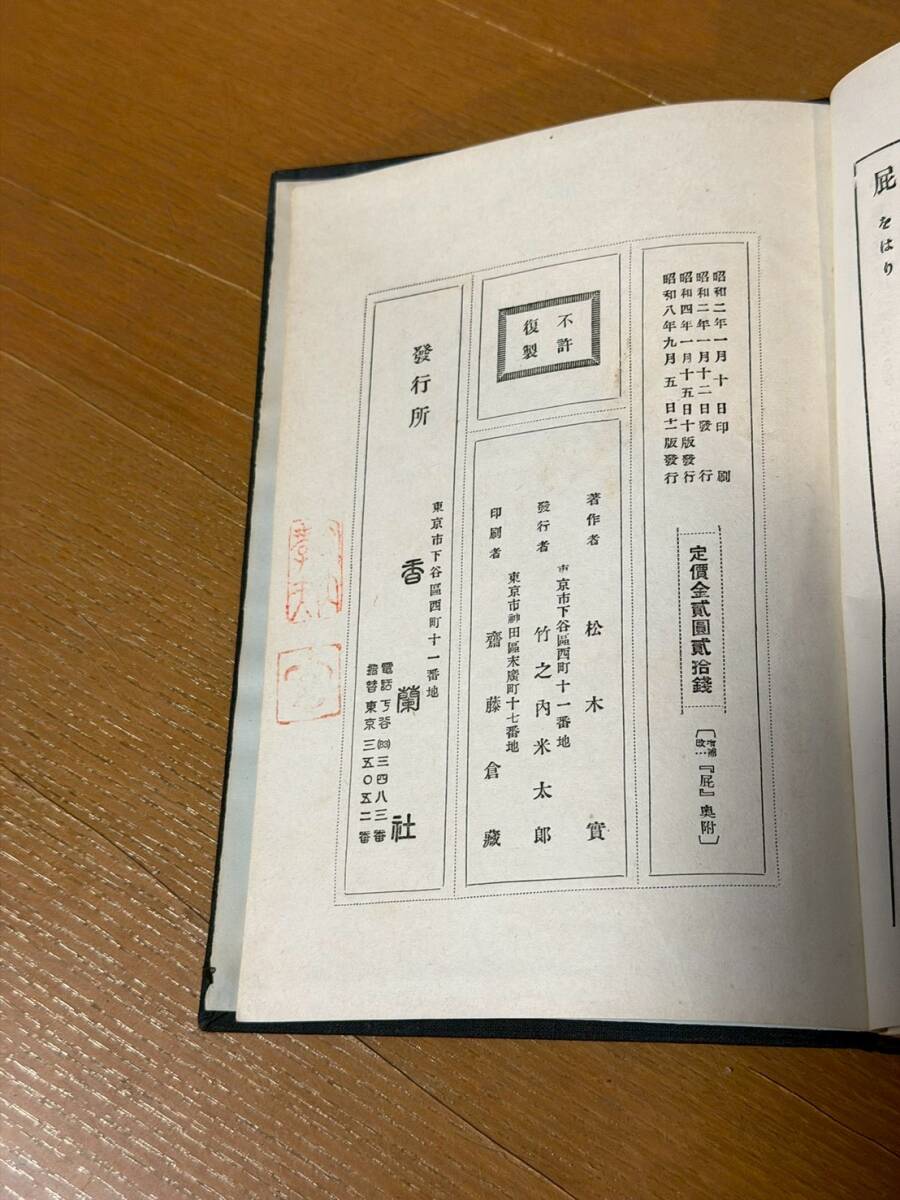 屁
をはり
昭和二年一月十日印刷
昭和二年一月十二日發行
昭和四年一月十五日十版發行
昭和八年九月五日十一版發行
定價金貳圓貳拾錢
『屁』奥附
不許
復製
著作者 松木實
發行者 竹之內米太郎
東京市下谷區西町十一番地
印刷者 齋藤倉藏
東京市神田區末廣町十七番地
發行所 香蘭社
東京市下谷區西町十一番地
電話下谷(83)三四八三番
振替東京三五〇五二番